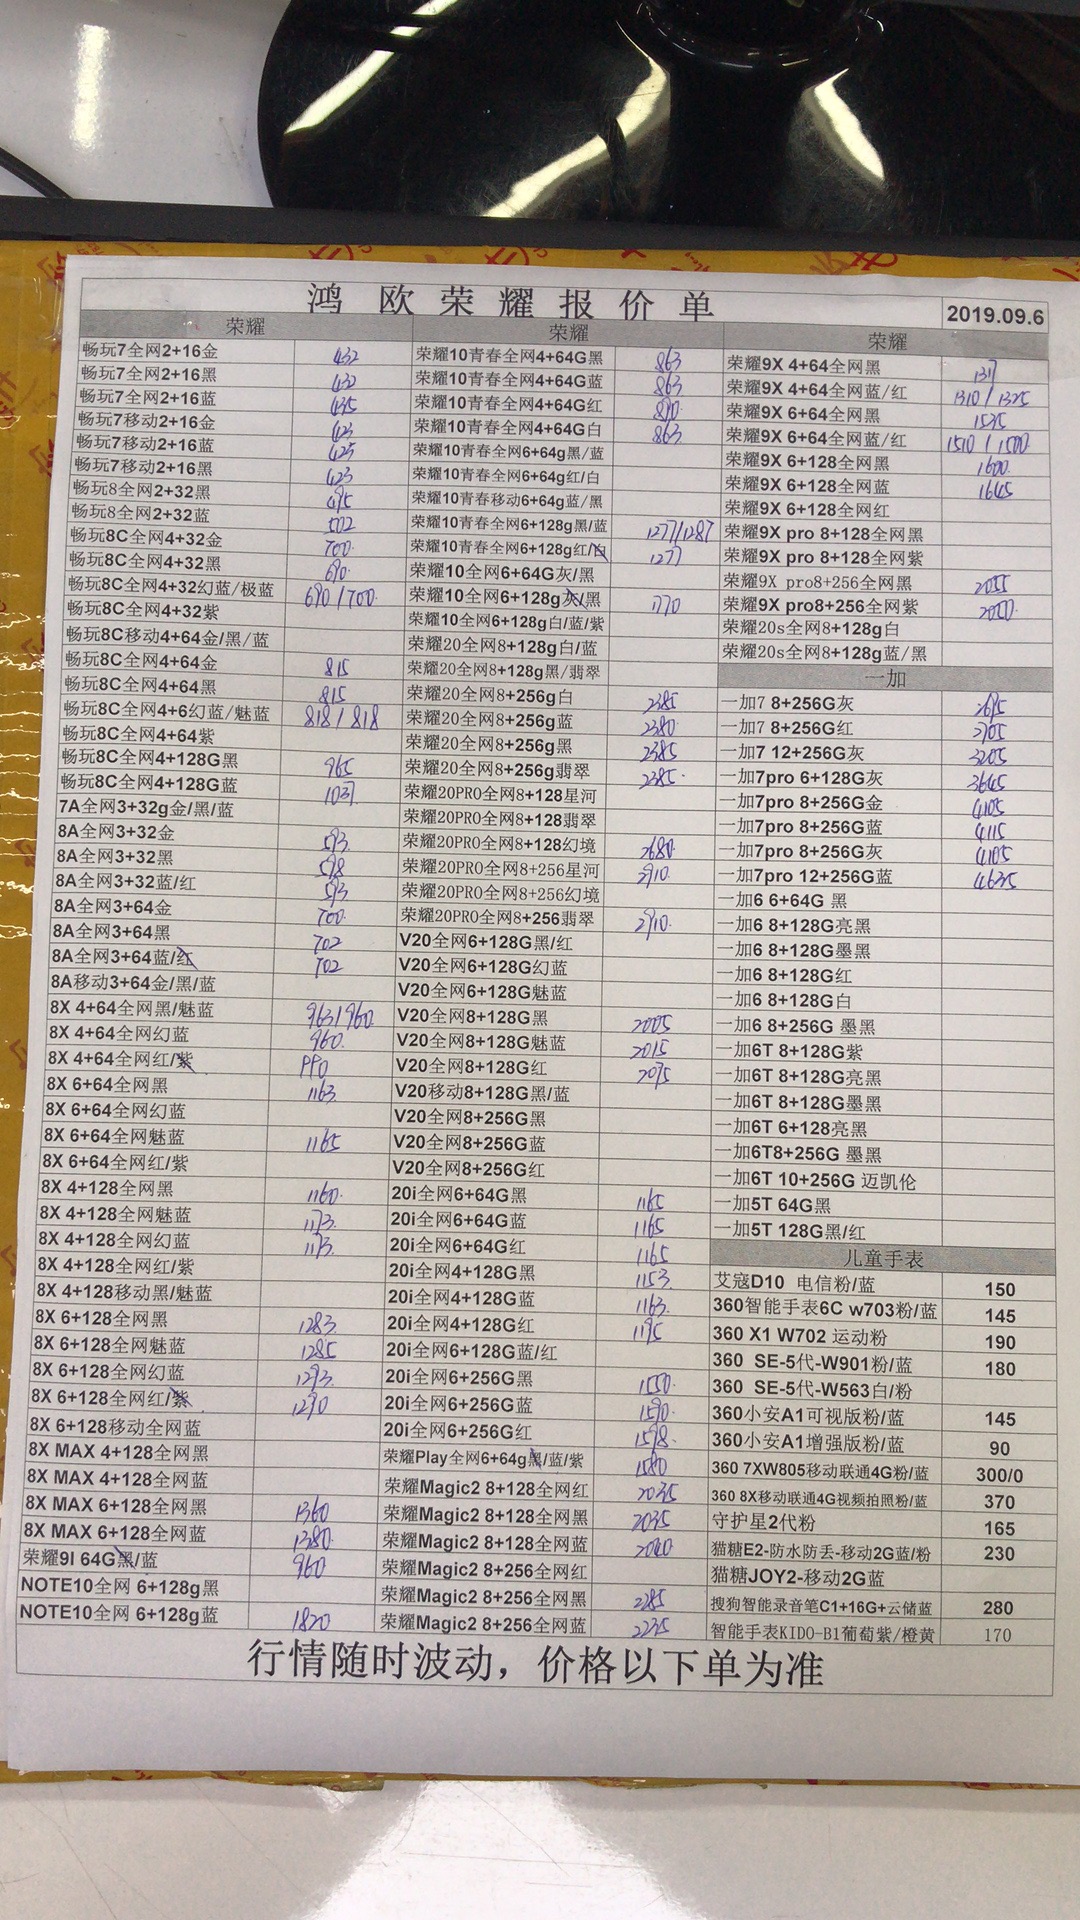 鸿欧荣耀报价单 2019.09.6
荣耀
畅玩7全网2+16金 432
畅玩7全网2+16黑 432
畅玩7全网2+16蓝 435
畅玩7移动2+16金 423
畅玩7移动2+16蓝 425
畅玩7移动2+16黑 423
畅玩8全网2+32黑 495
畅玩8全网2+32蓝 502
畅玩8C全网4+32金 700
畅玩8C全网4+32黑 690
畅玩8C全网4+32幻蓝/极蓝 690/700
畅玩8C全网4+32紫
畅玩8C移动4+64金/黑/蓝
畅玩8C全网4+64金 815
畅玩8C全网4+64黑 815
畅玩8C全网4+6幻蓝/魅蓝 818/818
畅玩8C全网4+64紫
畅玩8C全网4+128G黑 965
畅玩8C全网4+128G蓝
7A全网3+32g金/黑/蓝
8A全网3+32金 593
8A全网3+32黑 598
8A全网3+32蓝/红 593
8A全网3+64金 700
8A全网3+64黑 702
8A全网3+64蓝/红 702
8A移动3+64金/黑/蓝
8X 4+64全网黑/魅蓝 963/960
8X 4+64全网幻蓝 960
8X 4+64全网红/紫 990
8X 6+64全网黑 1163
8X 6+64全网幻蓝
8X 6+64全网魅蓝 1165
8X 6+64全网红/紫
8X 4+128全网黑 1160
8X 4+128全网魅蓝 1173
8X 4+128全网幻蓝 1173
8X 4+128全网红/紫
8X 4+128移动黑/魅蓝
8X 6+128全网黑 1283
8X 6+128全网魅蓝 1285
8X 6+128全网幻蓝 1293
8X 6+128全网红/紫 1290
8X 6+128移动全网蓝
8X MAX 4+128全网黑
8X MAX 4+128全网蓝
8X MAX 6+128全网黑 1360
8X MAX 6+128全网蓝 1380
荣耀9I 64G黑/蓝 960
NOTE10全网 6+128g黑
NOTE10全网 6+128g蓝 1820
荣耀
荣耀10青春全网4+64G黑 863
荣耀10青春全网4+64G蓝 863
荣耀10青春全网4+64G红 890
荣耀10青春全网4+64G白 863
荣耀10青春全网6+64g黑/蓝
荣耀10青春全网6+64g红/白
荣耀10青春移动6+64g蓝/黑
荣耀10青春全网6+128g黑/蓝 1277/1287
荣耀10青春全网6+128g红/白 1277
荣耀10全网6+64G灰/黑
荣耀10全网6+128g灰/黑 1770
荣耀10全网6+128g白/蓝/紫
荣耀20全网8+128g白/蓝
荣耀20全网8+128g黑/翡翠
荣耀20全网8+256g白 2385
荣耀20全网8+256g蓝 2380
荣耀20全网8+256g黑 2385
荣耀20全网8+256g翡翠 2385
荣耀20PRO全网8+128星河
荣耀20PRO全网8+128翡翠
荣耀20PRO全网8+128幻境 2680
荣耀20PRO全网8+256星河 2910
荣耀20PRO全网8+256幻境
荣耀20PRO全网8+256翡翠 2910
V20全网6+128G黑/红
V20全网6+128G幻蓝
V20全网6+128G魅蓝
V20全网8+128G黑 2005
V20全网8+128G魅蓝 2015
V20全网8+128G红 2075
V20移动8+128G黑/蓝
V20全网8+256G黑
V20全网8+256G蓝
V20全网8+256G红
20i全网6+64G黑 1165
20i全网6+64G蓝 1165
20i全网6+64G红 1165
20i全网4+128G黑 1153
20i全网4+128G蓝 1163
20i全网4+128G红 1195
20i全网6+128G蓝/红
20i全网6+256G黑 1550
20i全网6+256G蓝 1590
20i全网6+256G红 1598
荣耀Play全网6+64g黑/蓝/紫 1580
荣耀Magic2 8+128全网红 2035
荣耀Magic2 8+128全网黑 2035
荣耀Magic2 8+128全网蓝 2040
荣耀Magic2 8+256全网红
荣耀Magic2 8+256全网黑 2285
荣耀Magic2 8+256全网蓝 2235
荣耀
荣耀9X 4+64全网黑
荣耀9X 4+64全网蓝/红 1310/1325
荣耀9X 6+64全网黑 1525
荣耀9X 6+64全网蓝/红 1510/1500
荣耀9X 6+128全网黑 1600
荣耀9X 6+128全网蓝 1645
荣耀9X 6+128全网红
荣耀9X pro 8+128全网黑
荣耀9X pro 8+128全网紫
荣耀9X pro8+256全网黑 2055
荣耀9X pro8+256全网紫
荣耀20s全网8+128g白
荣耀20s全网8+128g蓝/黑
一加
一加7 8+256G灰 2695
一加7 8+256G红 2705
一加7 12+256G灰 3205
一加7pro 6+128G灰 3645
一加7pro 8+256G金 4105
一加7pro 8+256G蓝 4115
一加7pro 8+256G灰 4105
一加7pro 12+256G蓝 4635
一加6 6+64G 黑
一加6 8+128G亮黑
一加6 8+128G墨黑
一加6 8+128G红
一加6 8+128G白
一加6 8+256G 墨黑
一加6T 8+128G紫
一加6T 8+128G亮黑
一加6T 8+128G墨黑
一加6T 6+128亮黑
一加6T8+256G 墨黑
一加6T 10+256G 迈凯伦
一加5T 64G黑
一加5T 128G黑/红
儿童手表
艾寇D10 电信粉/蓝 150
360智能手表6C w703粉/蓝 145
360 X1 W702 运动粉 190
360 SE-5代-W901粉/蓝 180
360 SE-5代-W563白/粉
360小安A1可视版粉/蓝 145
360小安A1增强版粉/蓝 90
360 7XW805移动联通4G粉/蓝 300/0
360 8X移动联通4G视频拍照粉/蓝 370
守护星2代粉 165
猫糖E2-防水防丢-移动2G蓝/粉 230
猫糖JOY2-移动2G蓝
搜狗智能录音笔C1+16G+云储蓝 280
智能手表KIDO-B1葡萄紫/橙黄 170
行情随时波动，价格以下单为准